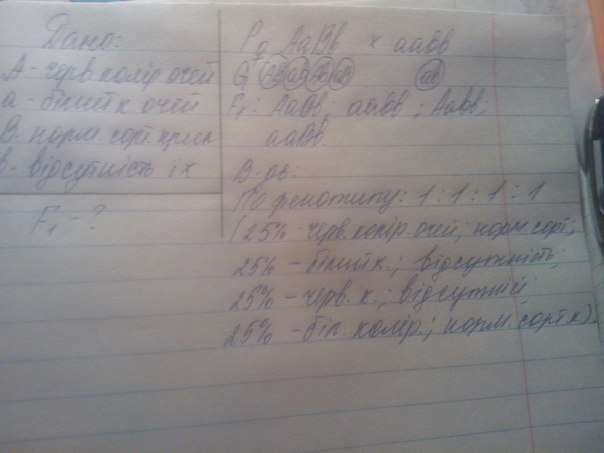 Дано:
А - черв. колір очей
а - білий к. очей
В - норм. сорт. крил
в - відсутність їх
F₁ - ?
P ♀ АаВв × аавв
G АВ ав Ав аВ ав
F₁: АаВв, аавв; Аавв;
ааВв.
В-дь:
По фенотипу: 1 : 1 : 1 : 1
(25% - черв. колір. очей; норм. сорт.;
25% - білий к.; відсутність;
25% - черв. к.; відсутній;
25% - біл. колір.; норм. сорт к).